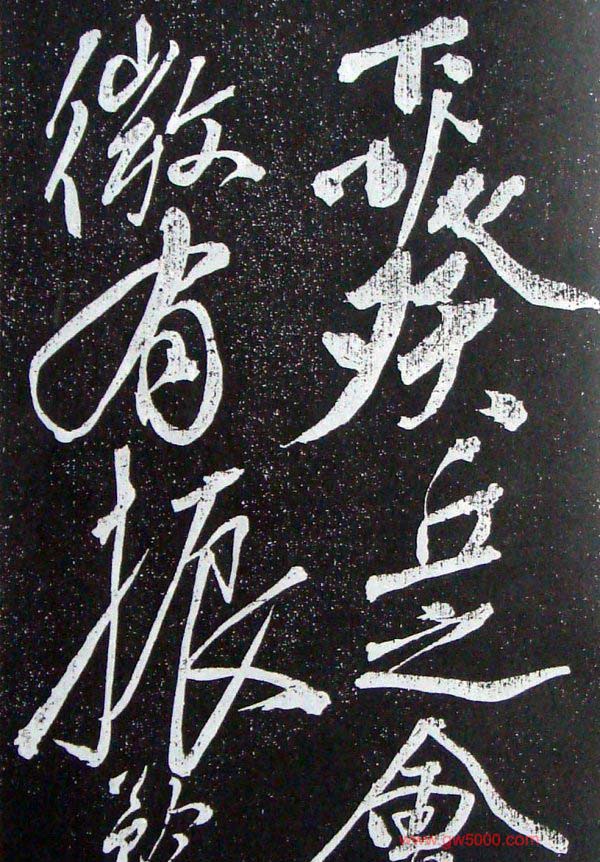 下葵丘之會
微有振
www.gw5000.com